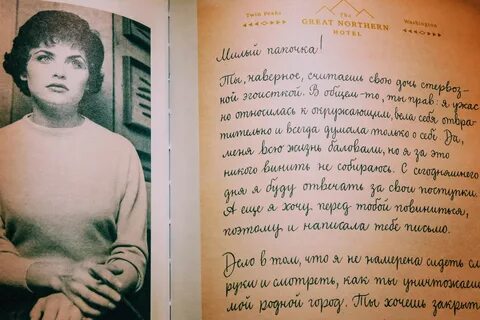 Twin Peaks
The
GREAT NORTHERN
HOTEL
Washington
Милый папочка!
Ты, наверное, считаешь свою дочь стервоз-
ной эгоисткой. В общем-то, ты прав: я ужас
но относилась к окружающим, вела себя отвра-
тительно и всегда думала только о себе. Да,
меня всю жизнь баловали, но я за это
никого винить не собираюсь. С сегодняшнего
дня я буду отвечать за свои поступки.
А еще я хочу перед тобой повиниться,
поэтому и написала тебе письмо.
Дело в том, что я не намерена сидеть сл
руки и смотреть, как ты уничтожаеш
мой родной город. Ты хочешь закрыт